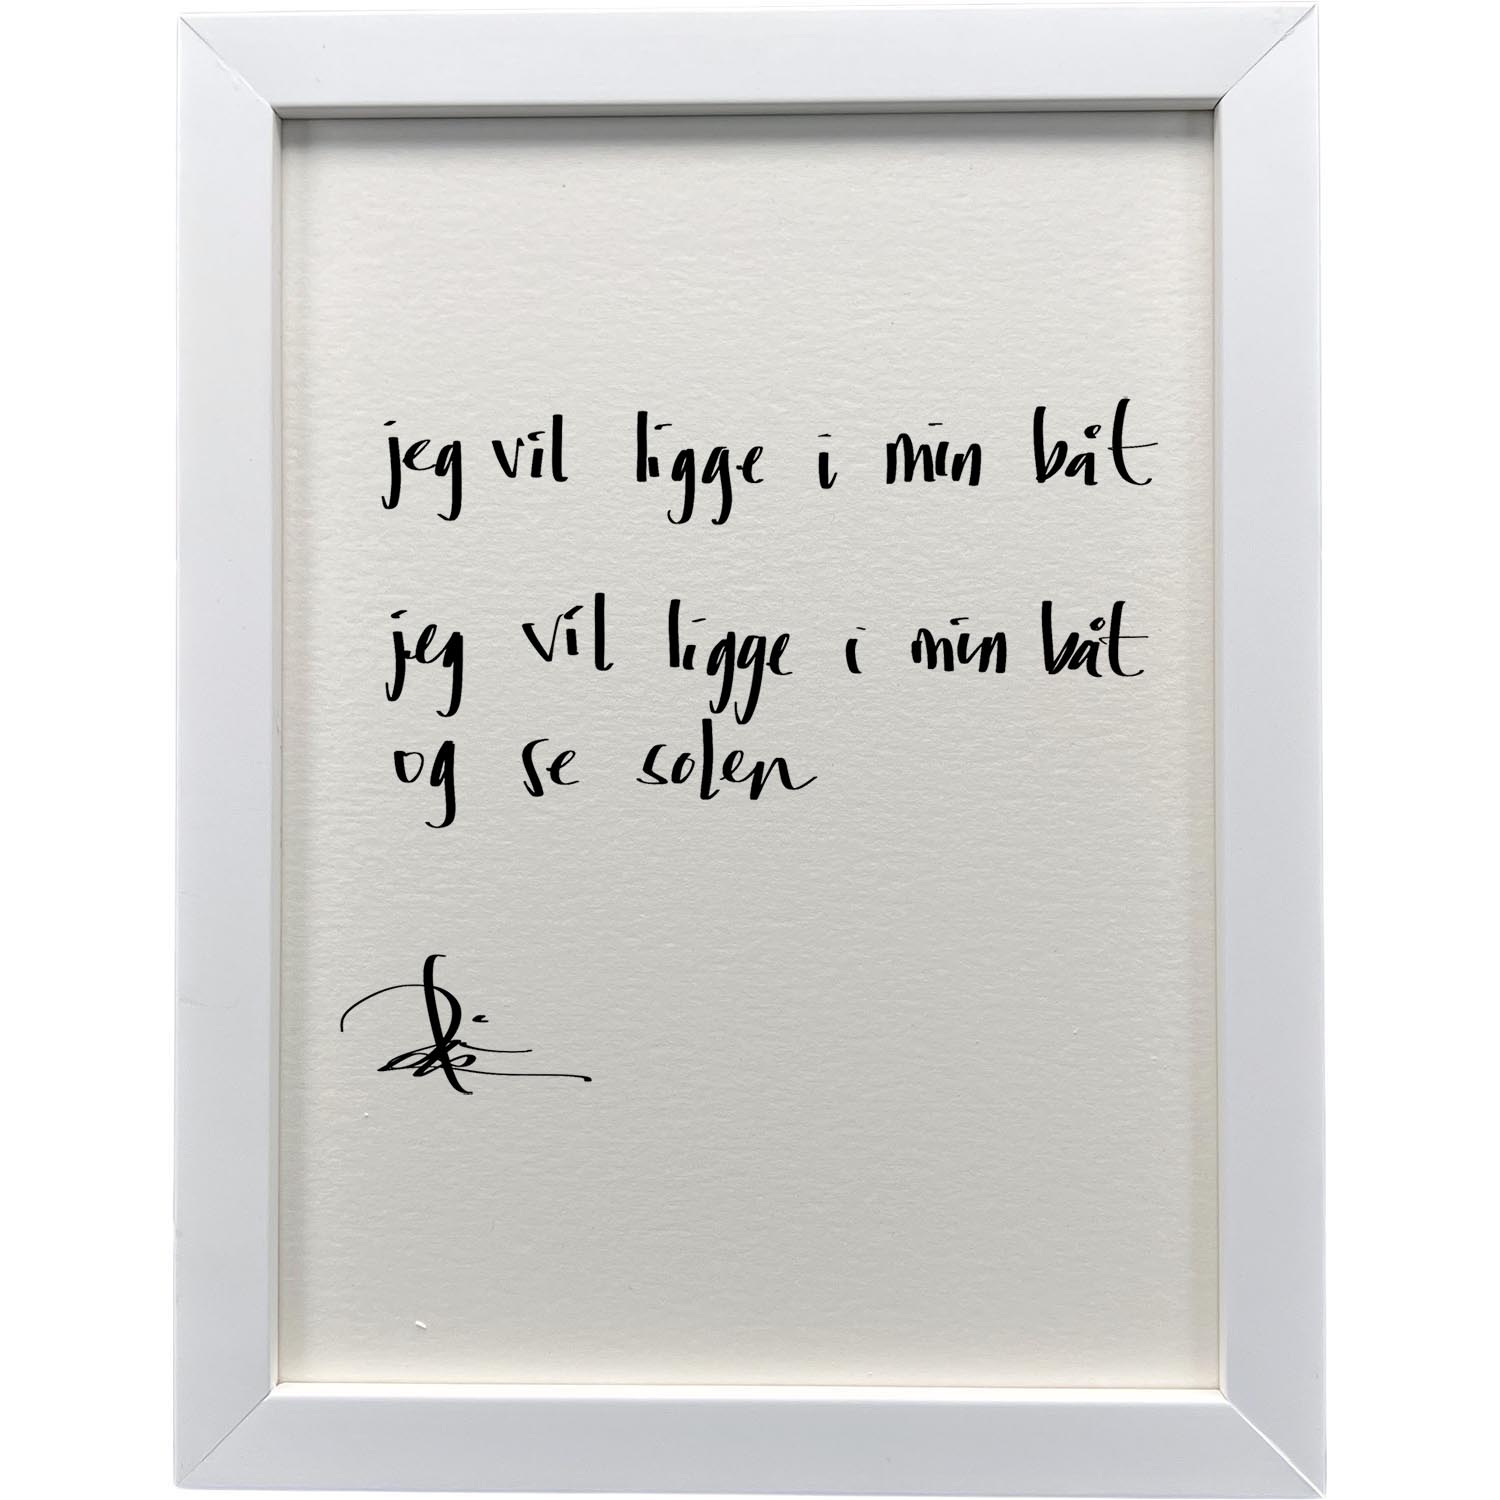 jeg vil ligge i min båt
jeg vil ligge i min båt
og se solen